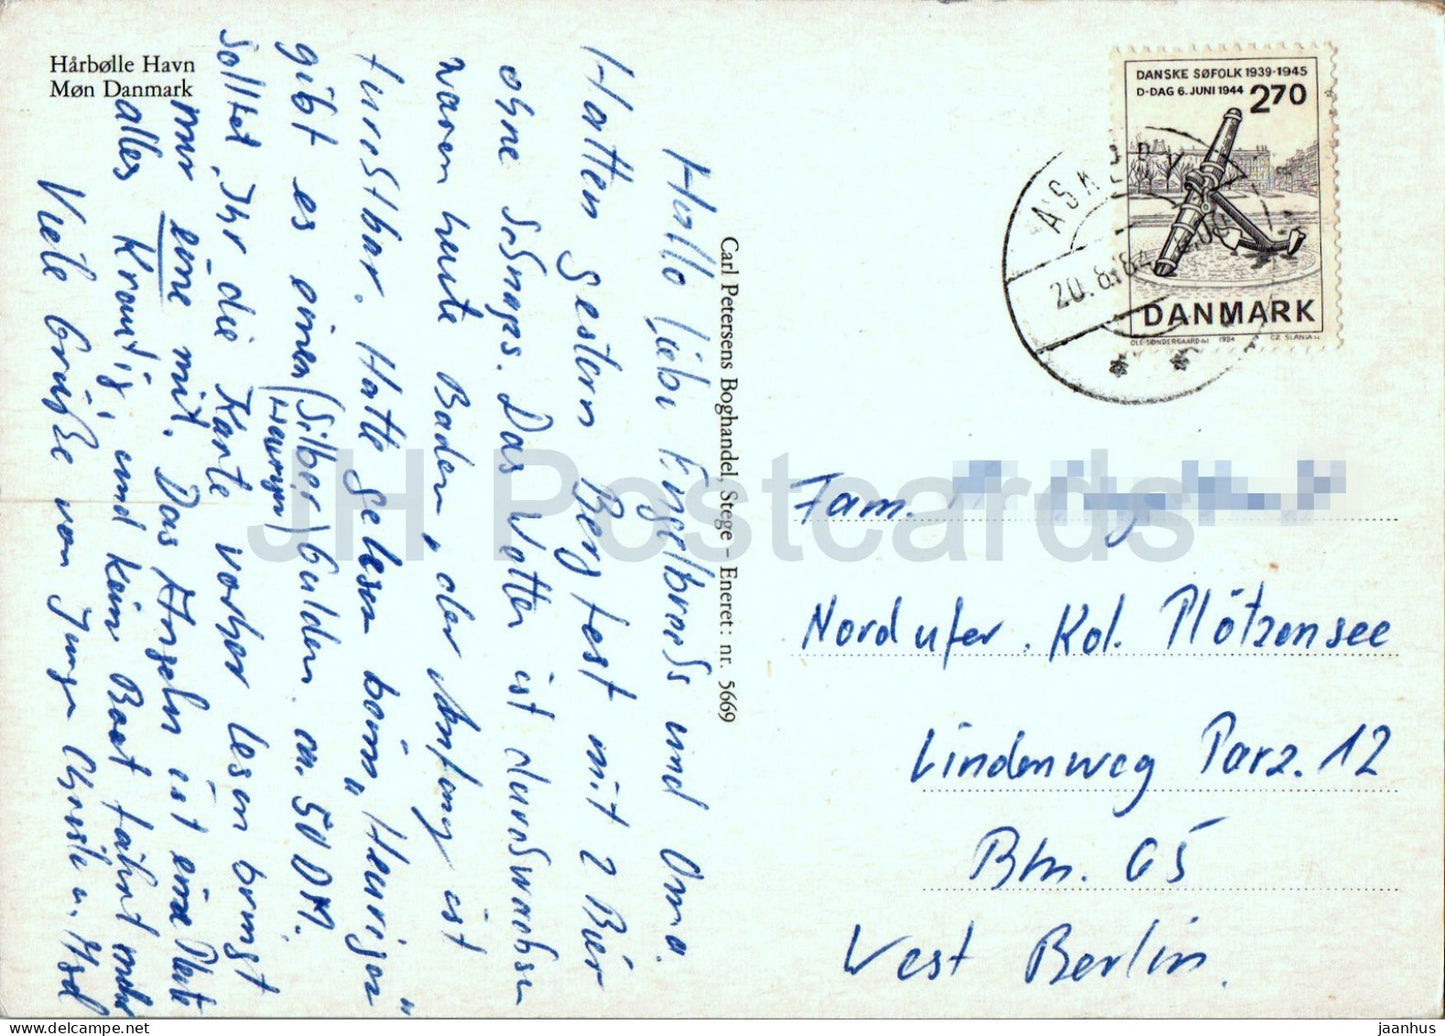 Hårbølle Havn
Møn Danmark
Hallo liebe Engelbrods und Oma.
Hatten gestern Bergfest mit 2 Bier
ohne Schnaps. Das Wetter ist durchwachsen
waren heute Baden, der Anfang ist
furchtbar. Hatte gelesen beim "Heurigen"
gibt es einen (Silber) Gulden ca. 50 DM.
Solltet Ihr die Karte vorher lesen bringt
mir eine mit. Das Angeln ist eine Pleite
alles Krautig, und kein Boot fährt mehr
Viele Grüße von Junge Christa u.
Carl Petersens Boghandel, Stege – Eneret: nr. 5669
DANSKE SØFOLK 1939-1945
D-DAG 6. JUNI 1944 270
DANMARK
OLE SØNDERGAARD del 1984 CZ. SLANIA sc
20.8.84
Fam.
Nordufer. Kol. Plötzensee
Lindenweg Parz. 12
Bln. 65
West Berlin.
JH Postcards
www.delcampe.net
jaanhus